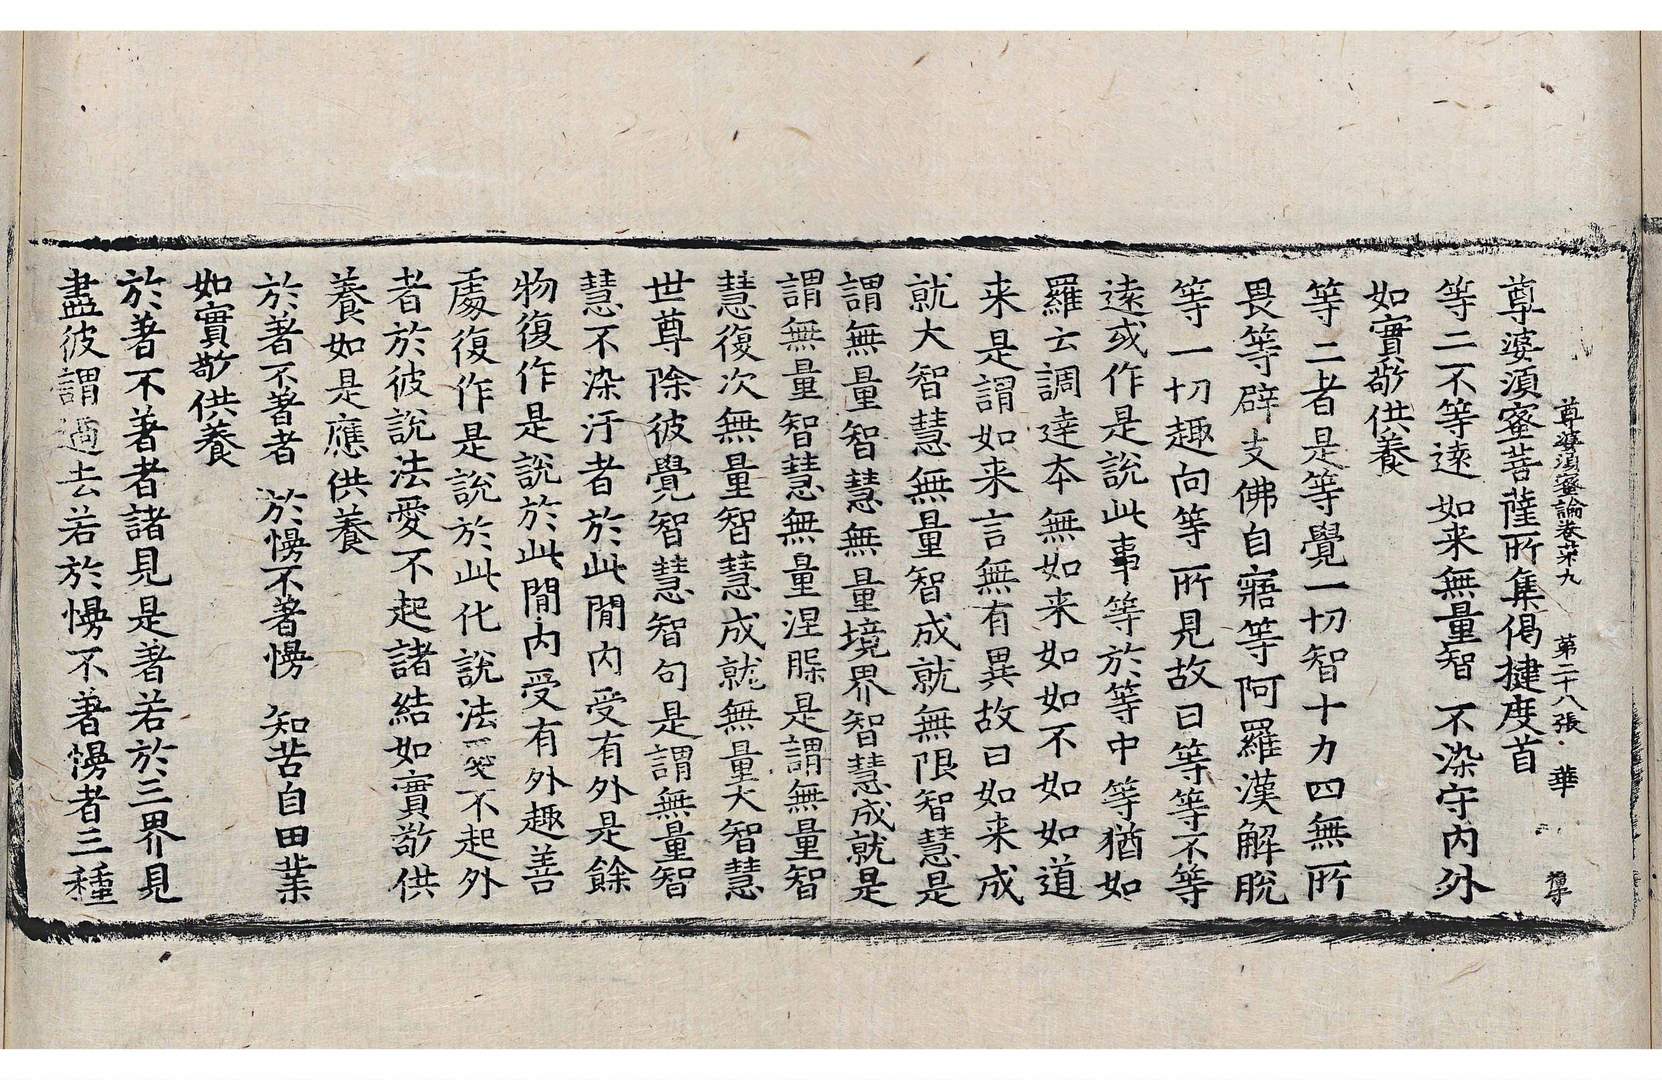 尊婆須蜜論卷第九　第二十八張　華
尊婆須蜜菩薩所集偈揵度首
等二不等遠　如来無量智　不染守内外
如實敬供養
等二者是等覺一切智十力四無所
畏等辟支佛自寤等阿羅漢解脫
等一切趣向等所見故曰等等不等
遠或作是說此事等於等中等猶如
羅云調達本無如来如如不如如道
来是謂如来言無有異故曰如来成
就大智慧無量智成就無限智慧是
謂無量智慧無量境界智慧成就是
謂無量智慧無量涅䐾是謂無量智
慧復次無量智慧成就無量大智慧
世尊除彼覺智慧智句是謂無量智
慧不染汙者於此間内受有外是餘
物復作是說於此間内受有外趣善
處復作是說於此化說法愛不起外
者於彼說法愛不起諸結如實敬供
養如是應供養
於著不著者　於慢不著慢　知苦自田業
如實敬供養
於著不著者諸見是著若於三界見
盡彼謂過去若於慢不著慢者三種